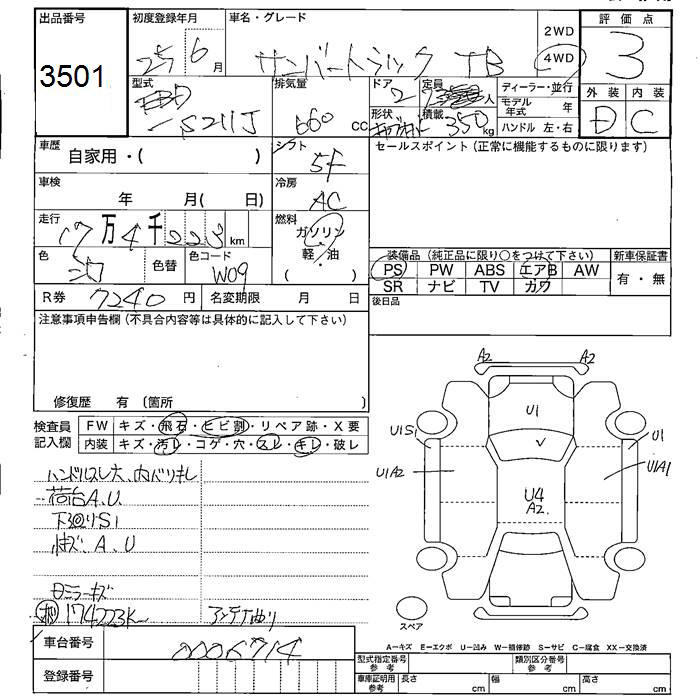 出品番号
3501
初度登録年月
25 6月
車名・グレード
サンバートラック TB
2WD
4WD
評価点
3
型式
EBD
-S211J
排気量
660 cc
ドア
2
定員
人
形状
積載
350 kg
ディーラー・並行
モデル年式 年
ハンドル 左・右
外装 内装
D C
車歴
自家用・( )
シフト
5F
セールスポイント(正常に機能するものに限ります)
車検
年 月( 日)
冷房
AC
走行
17万4千223km
燃料
ガソリン
軽・油
( )
色
シロ
色替
色コード
W09
装備品(純正品に限り○をつけて下さい)
新車保証書
PS PW ABS エアB AW
SR ナビ TV カワ
有・無
R券 7240円
名変期限 月 日
後日品
注意事項申告欄(不具合内容等は具体的に記入して下さい)
修復歴 有(箇所 )
検査員
記入欄
FW キズ・飛石・ヒビ割・リペア跡・X要
内装 キズ・汚レ・コゲ・穴・スレ・キレ・破レ
ハンドルスレ大、内バリキレ
荷台A.U
下廻りS1
A.U
ミラーキズ
174223K
アンテナ
A2 A2
U1
U1S1
U1
U1A2
U1A1
U4
A2
スペア
A-キズ E-エクボ U-凹み W-補修跡 S-サビ C-腐食 XX-交換済
車台番号
0006714
登録番号
型式指定番号
参考
類別区分番号
参考
車庫証明用
参考
長さ cm
幅 cm
高さ cm